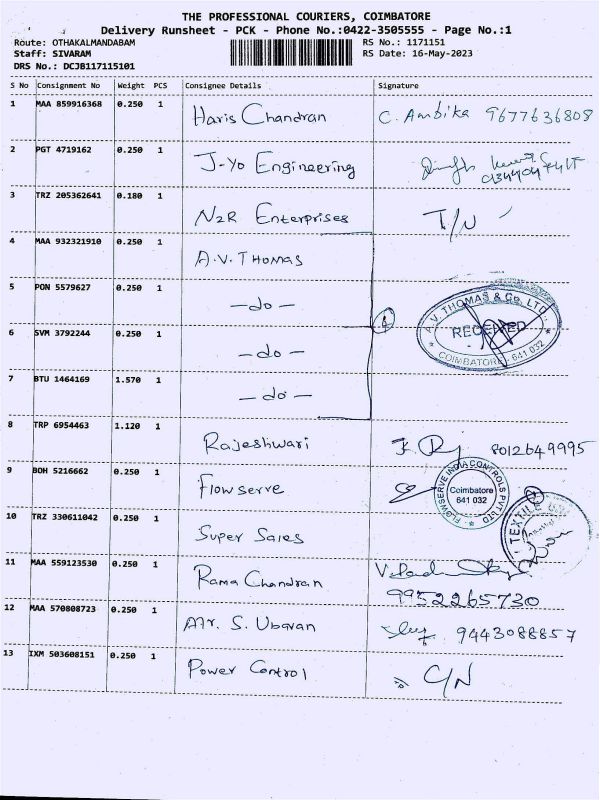 THE PROFESSIONAL COURIERS, COIMBATORE
Delivery Runsheet - PCK - Phone No.:0422-3505555 - Page No.:1
Route: OTHAKALMANDABAM RS No.: 1171151
Staff: SIVARAM RS Date: 16-May-2023
DRS No.: DCJB117115101
S No Consignment No Weight PCS Consignee Details Signature
1 MAA 859916368 0.250 1 Haris Chandran C. Ambika 9677636808
2 PGT 4719162 0.250 1 J-Yo Engineering
3 TRZ 205362641 0.180 1 N2R Enterprises T/N
4 MAA 932321910 0.250 1 A.V. THOMAS
5 PON 5579627 0.250 1 -do-
A.V. THOMAS & Co. LTD.,
6 SVM 3792244 0.250 1 -do- RECEIVED
COIMBATORE - 641 032
7 BTU 1464169 1.570 1 -do-
8 TRP 6954463 1.120 1 Rajeshwari 8012649995
9 BOH 5216662 0.250 1 Flowserve
FLOWSERVE INDIA CONTROLS PVT LTD
Coimbatore
641 032
10 TRZ 330611042 0.250 1 Super Sales
TEXTILE
11 MAA 559123530 0.250 1 Rama Chandran
9952265730
12 MAA 570808723 0.250 1 Mr. S. Ubaran 9443088857
13 IXM 503608151 0.250 1 Power Control C/N